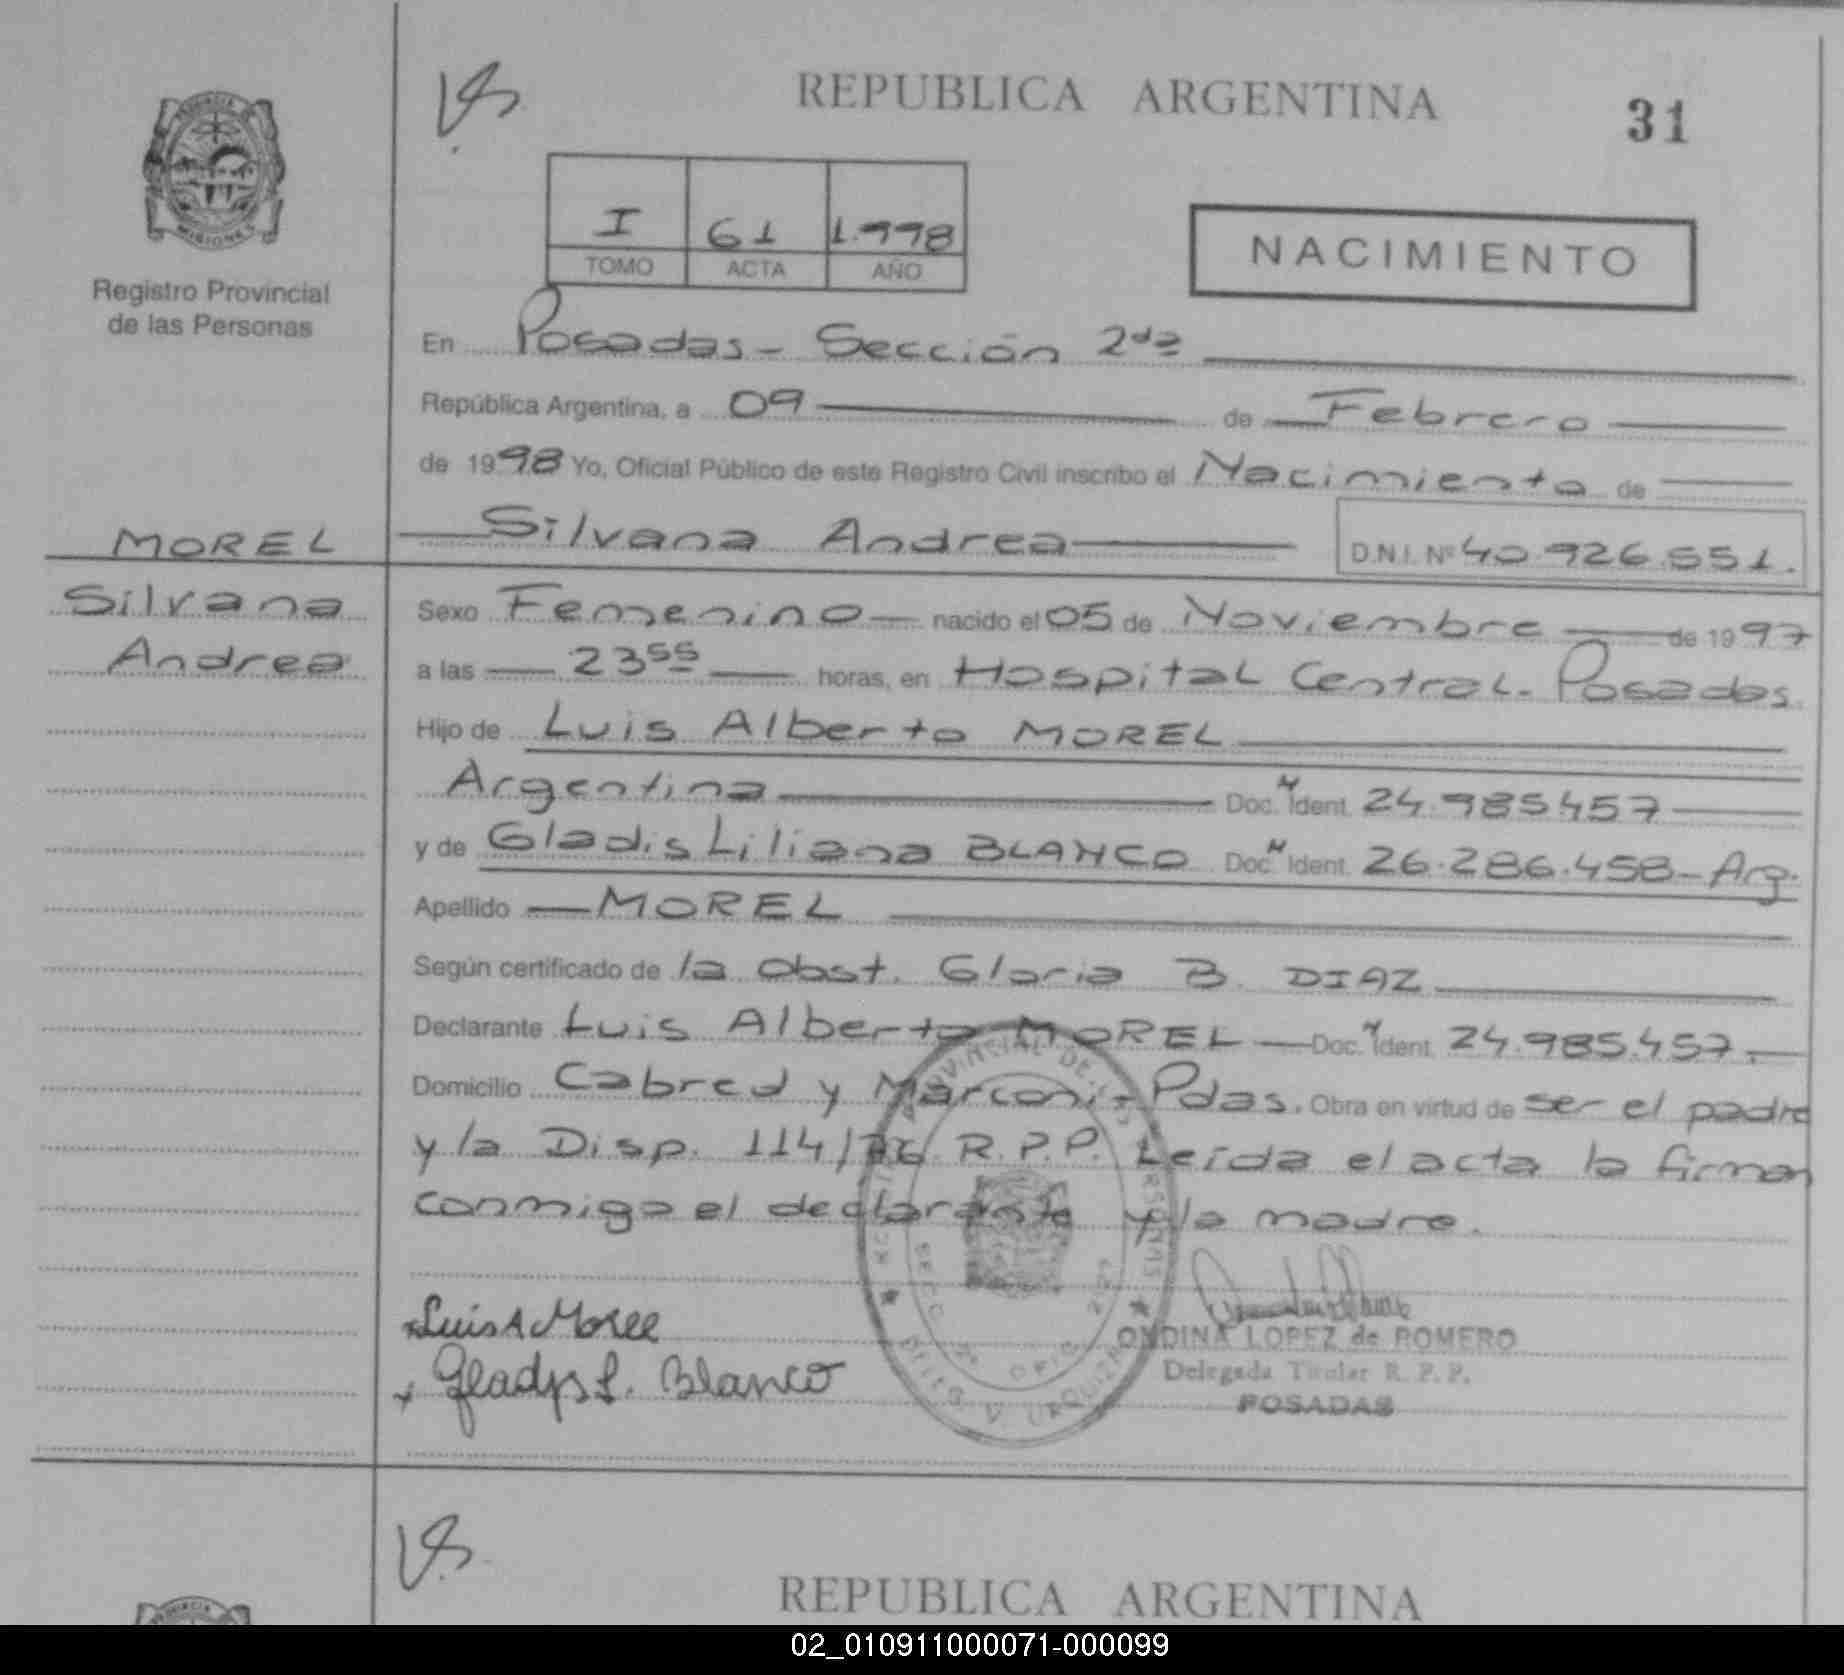 REPUBLICA ARGENTINA
31
I 61 1.998
TOMO ACTA AÑO
NACIMIENTO
PROVINCIA
MISIONES
Registro Provincial
de las Personas
En Posadas - Sección 2da
República Argentina, a 09 de Febrero
de 1998 Yo, Oficial Público de este Registro Civil inscribo el Nacimiento de
MOREL
Silvana Andrea D.N.I. Nº 40.926.551.
Silvana
Andrea
Sexo Femenino nacido el 05 de Noviembre de 1997
a las 23 55 horas, en Hospital Central - Posadas.
Hijo de Luis Alberto MOREL
Argentina Doc. Ident. 24.985.457
y de Gladis Liliana BLANCO Doc. Ident. 26.286.458 - Arg.
Apellido MOREL
Según certificado de la Obst. Gloria B. DIAZ
Declarante Luis Alberto MOREL Doc. Ident. 24.985.457.
Domicilio Cabred y Marconi - Pdas. Obra en virtud de ser el padre
y la Disp. 114/76 R.P.P. Leída el acta la firman
conmigo el declarante y la madre.
Luis A Morel
Gladys L. Blanco
ONDINA LOPEZ de ROMERO
Delegada Titular R. P. P.
POSADAS
REPUBLICA ARGENTINA
PROVINCIA
02_010911000071-000099